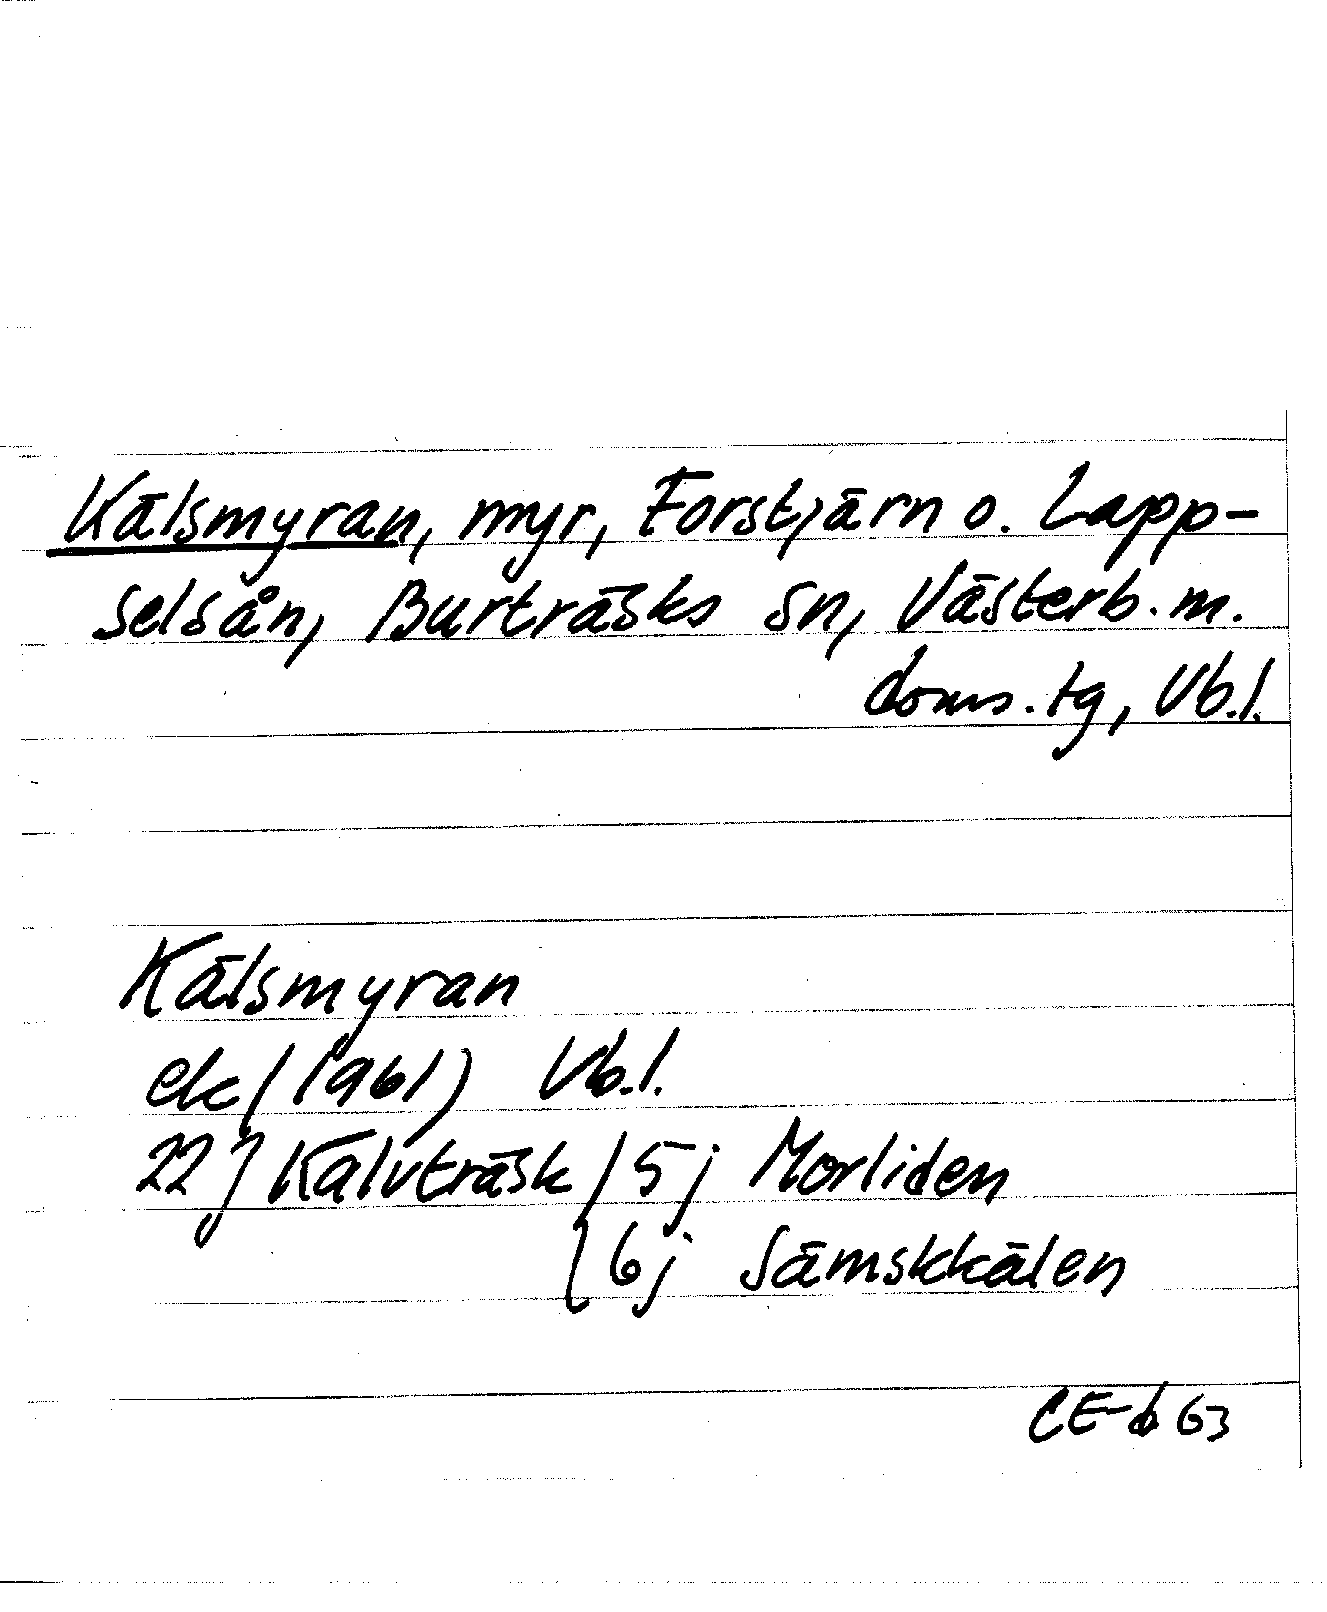 Kälsmyran, myr, Forstjärn o. Lapp-
selsån, Burträsks sn, Västerb. m.
doms. tg, Vb.l.
Kälsmyran
ek (1961) Vb.l.
22 J Kalvträsk / 5 j Morliden
6 j Sämskkälen
CE-d 63